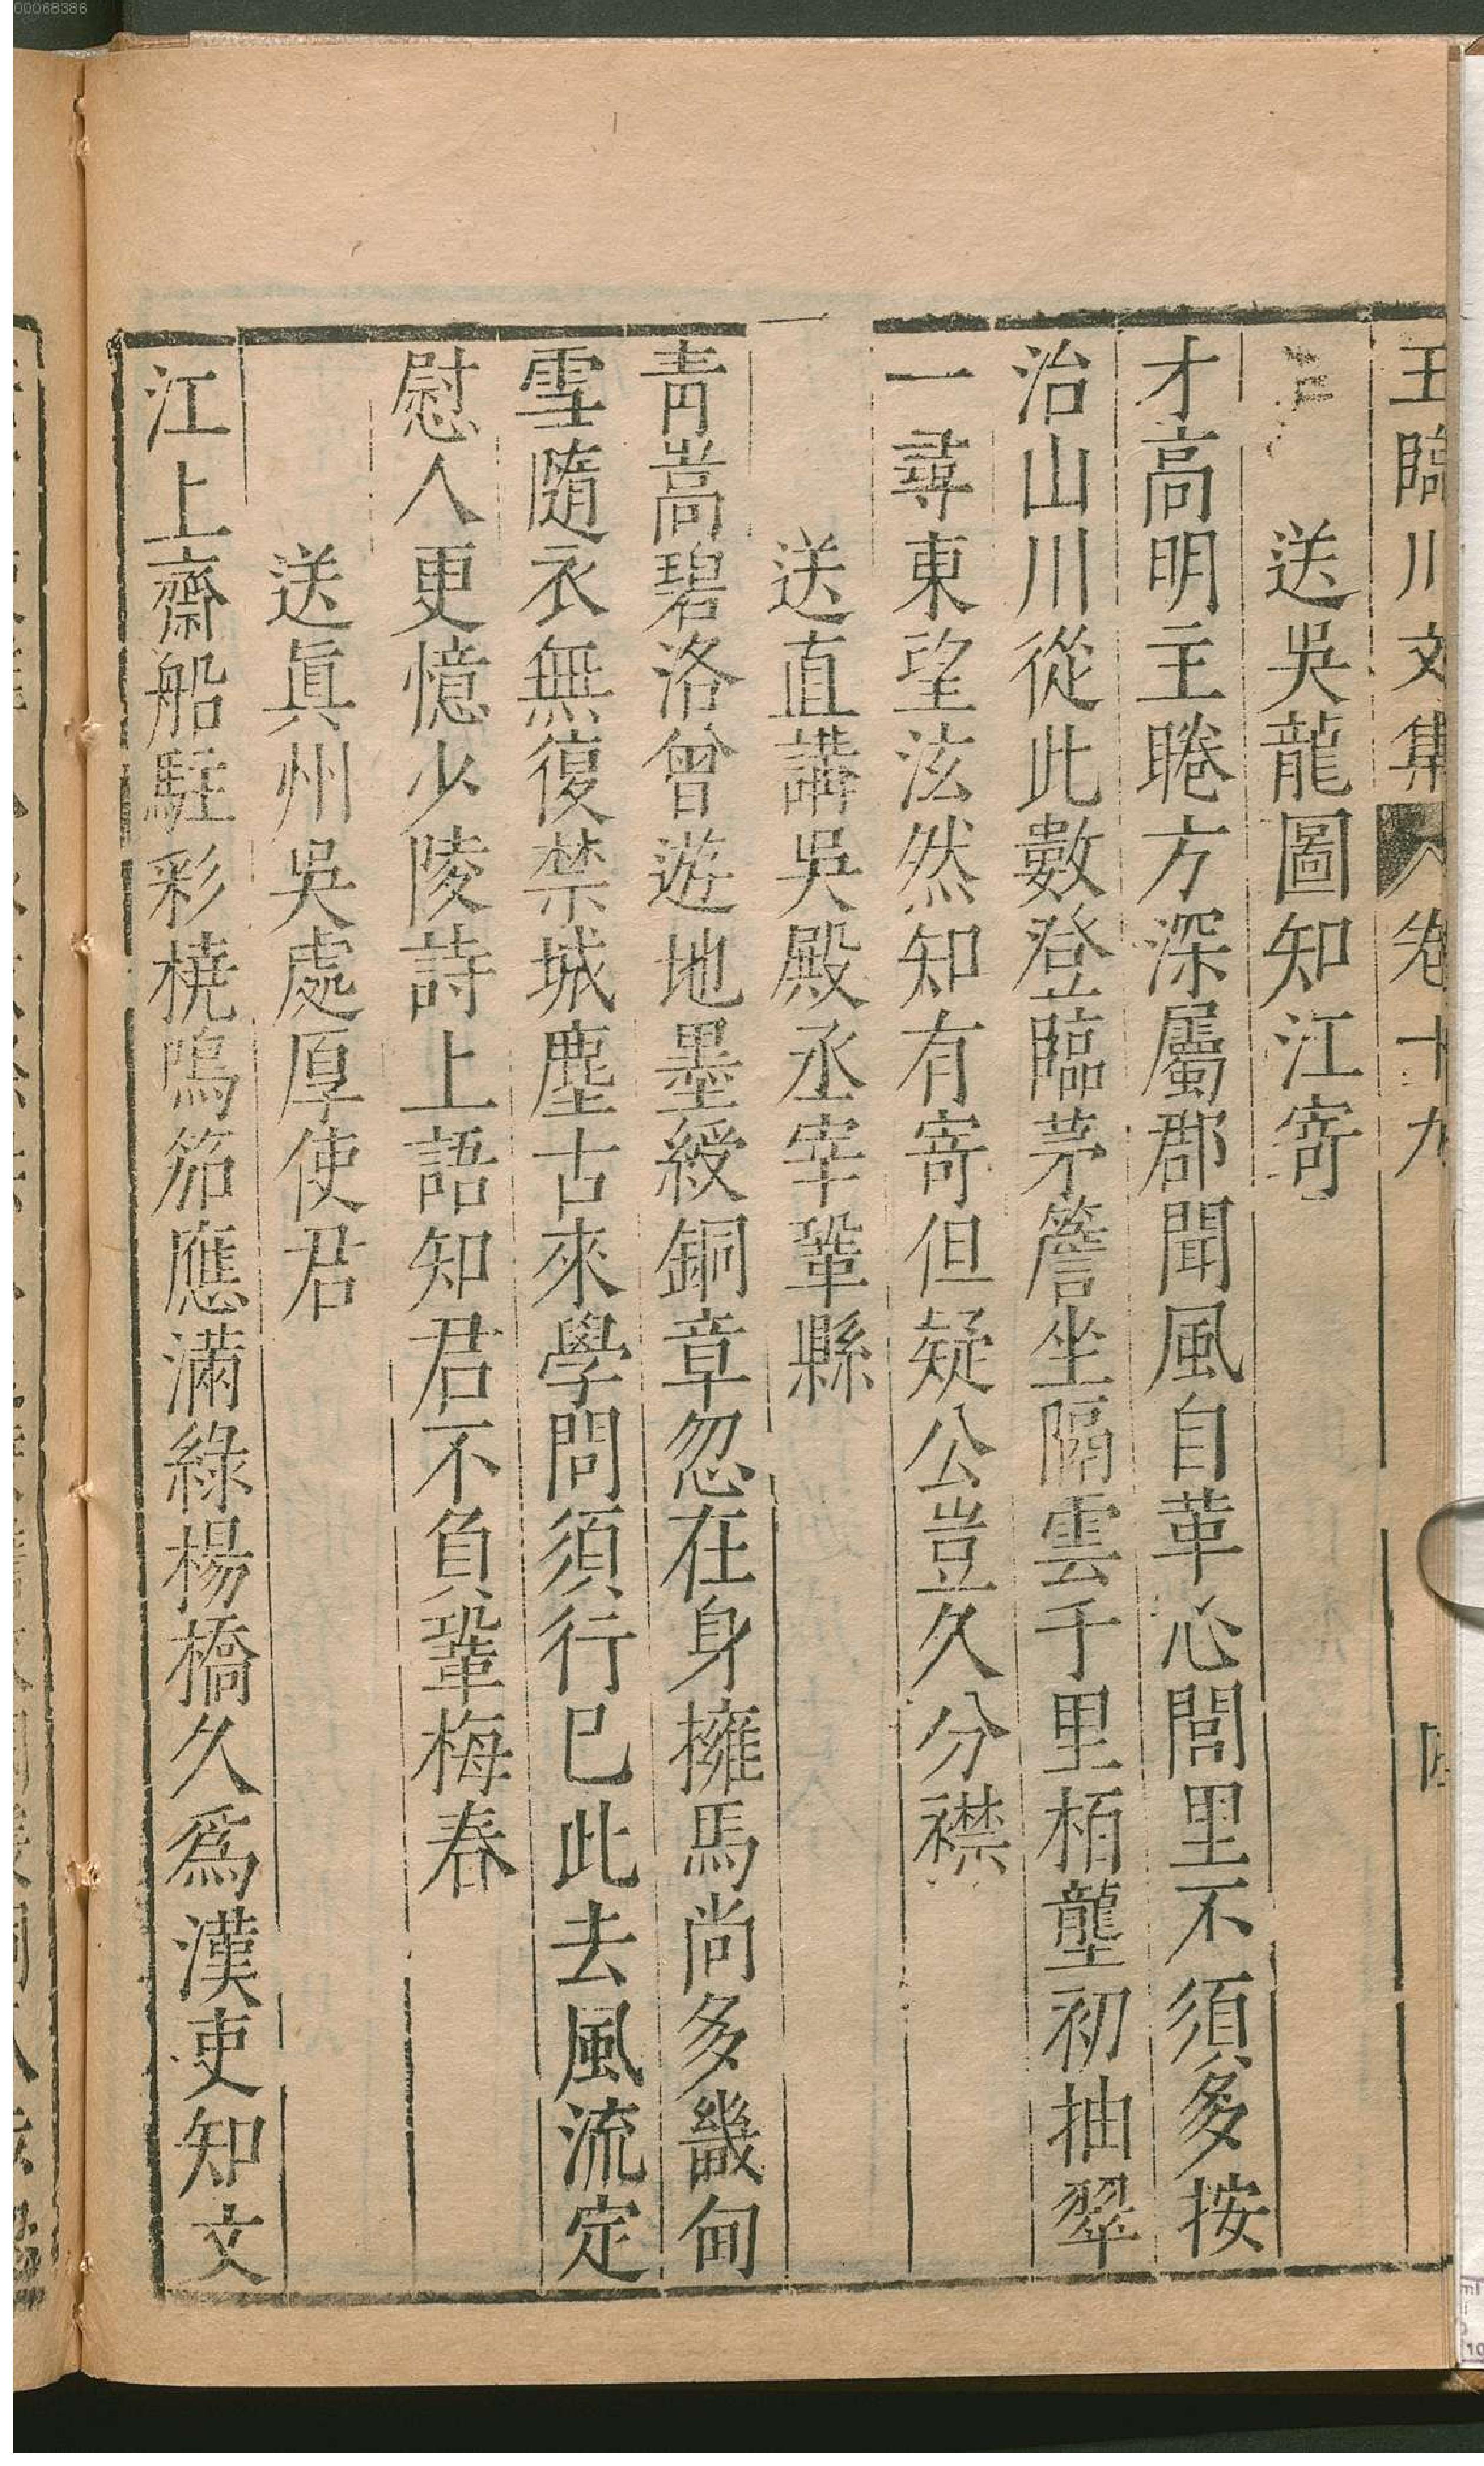 00068386
王臨川文集 卷十九
送吳龍圖知江寄
才高明主睠方深屬郡聞風自革心閭里不須多按
治山川從此數登臨茅簷坐隔雲千里栢壟初抽翠
一尋東望泫然知有寄但疑公豈久分襟
送直講吳殿丞宰鞏縣
青嵩碧洛曾遊地墨綬銅章忽在身擁馬尚多畿甸
雪隨衣無復禁城塵古來學問須行已此去風流定
慰人更憶少陵詩上語知君不負鞏梅春
送眞州吳處厚使君
江上齋船駐彩橈鳴笳應滿綠楊橋久爲漢吏知文